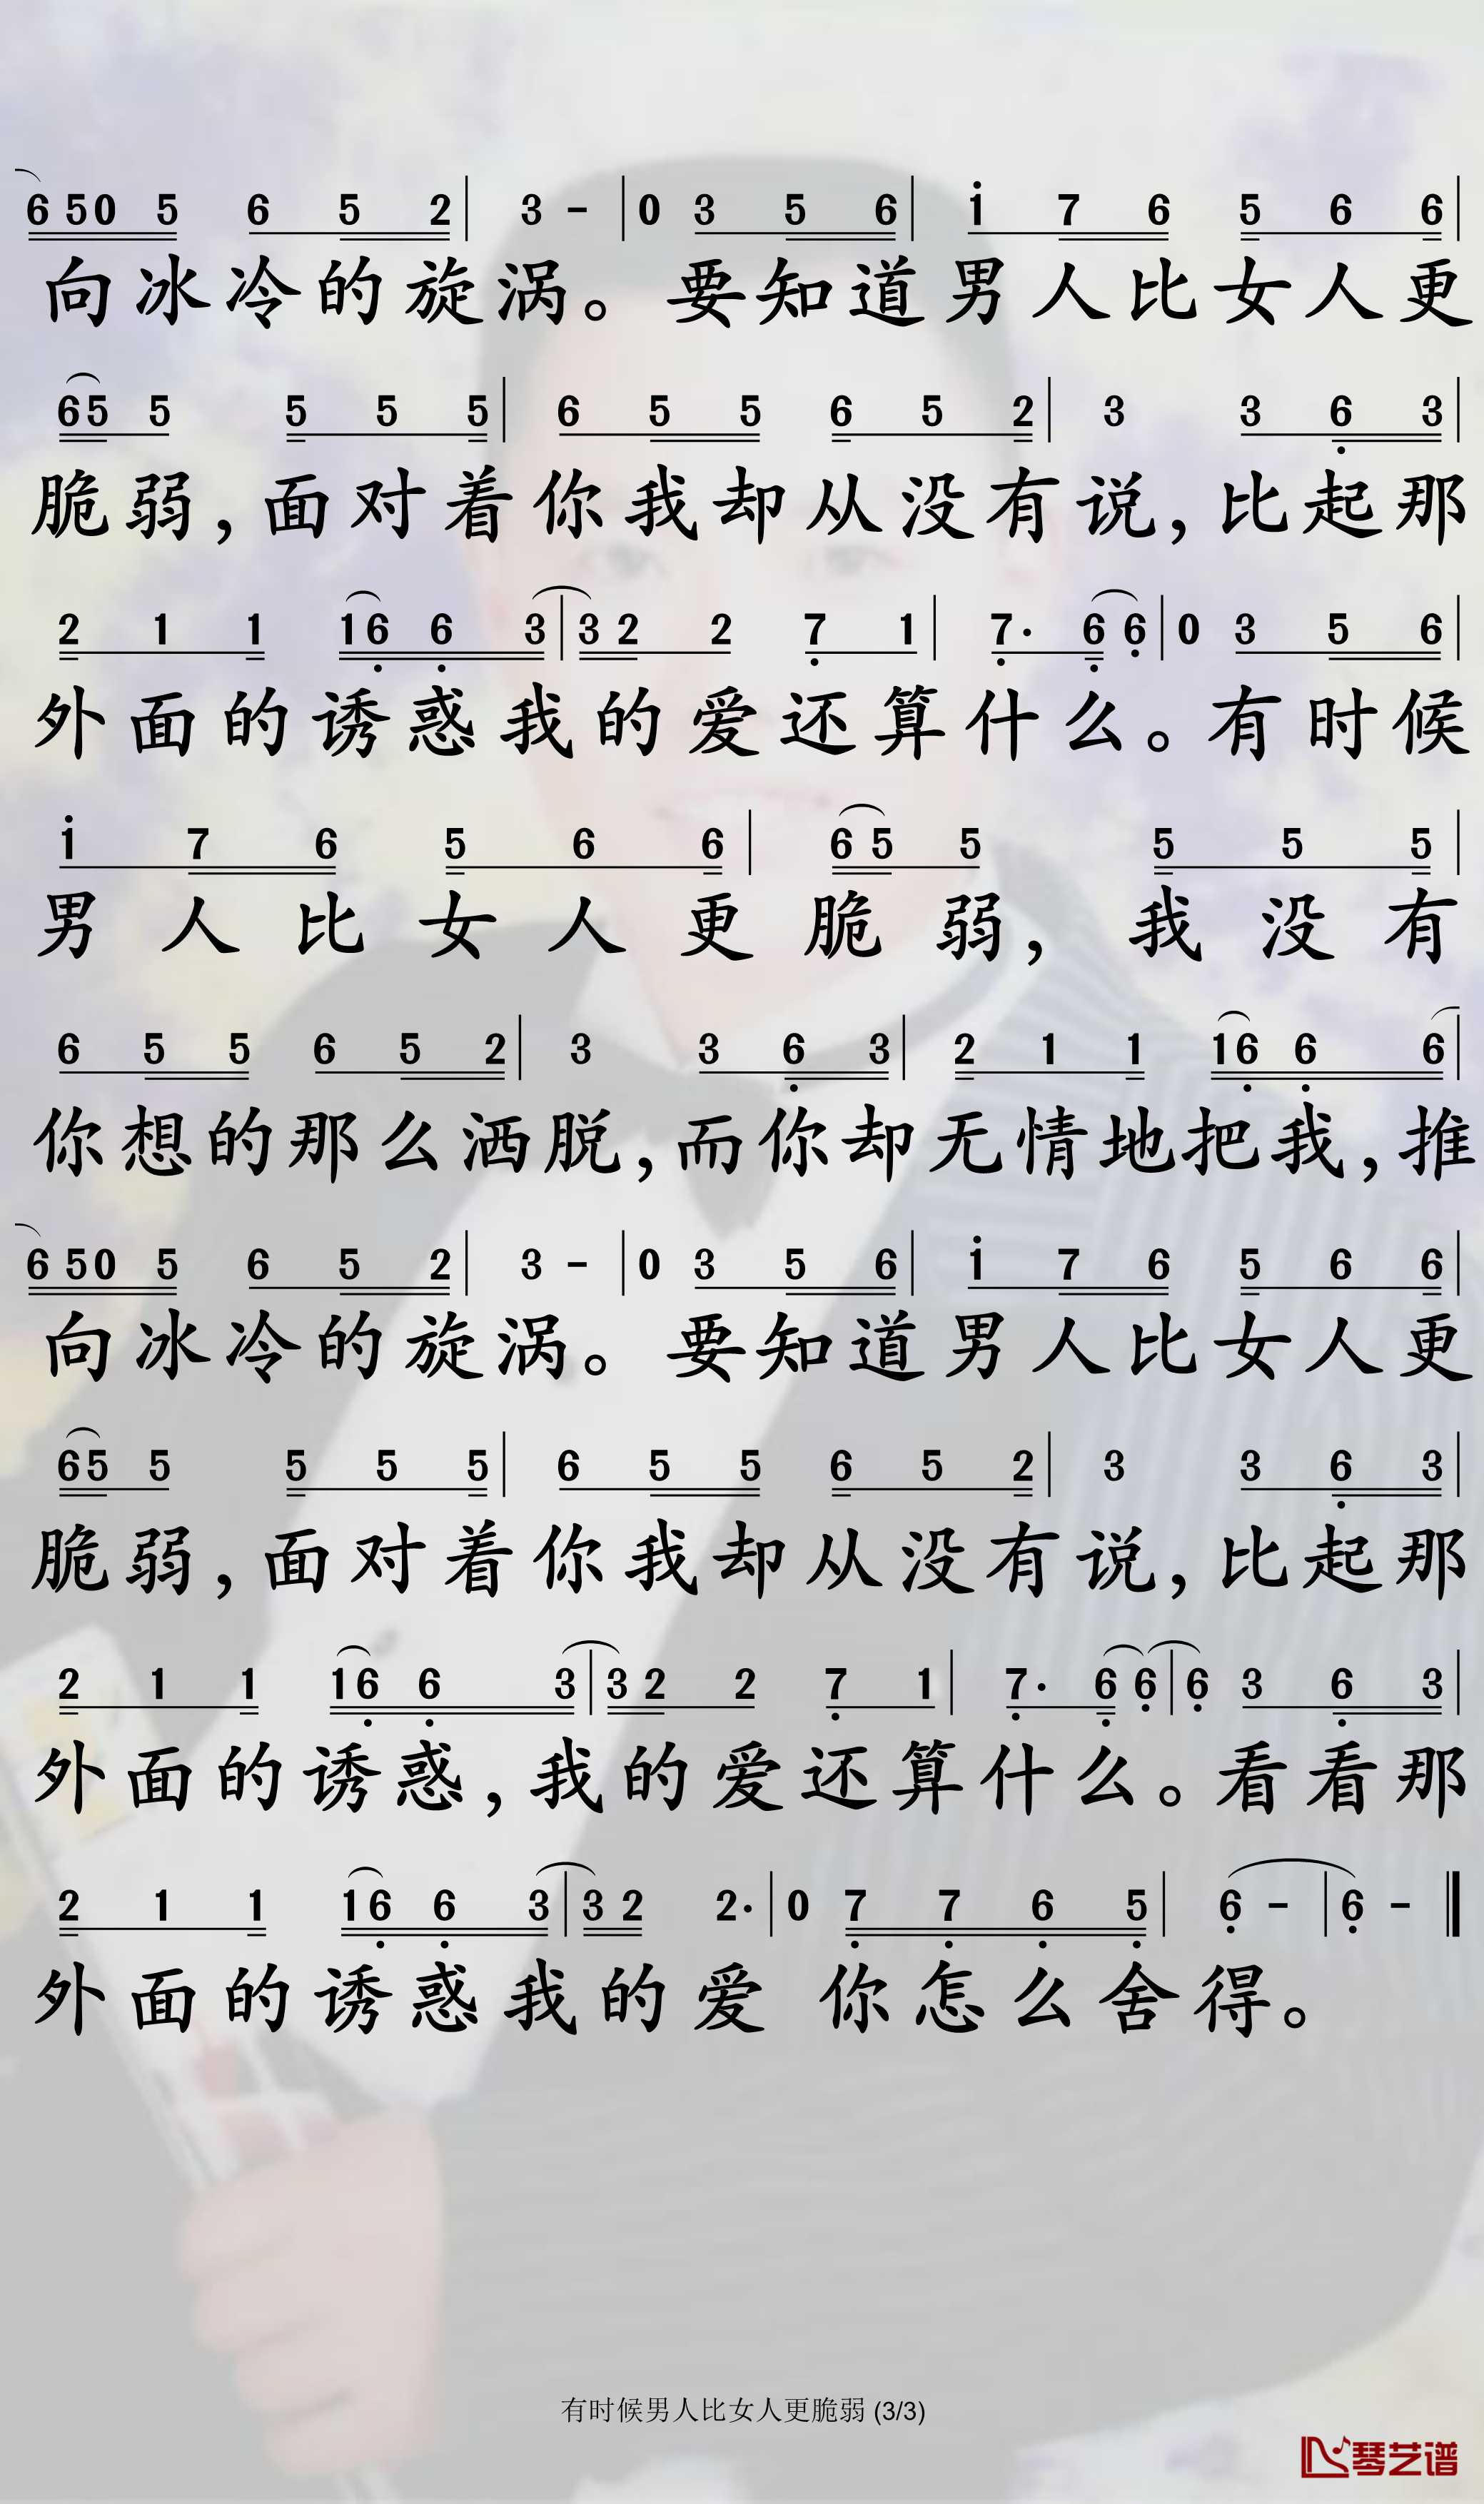 6 5 0 5 6 5 2 | 3 - | 0 3 5 6 | i 7 6 5 6 6 |
向冰冷的旋涡。要知道男人比女人更
6 5 5 5 5 5 | 6 5 5 6 5 2 | 3 3 6 3 |
脆弱,面对着你我却从没有说,比起那
2 1 1 1 6 6 3 | 3 2 2 7 1 | 7· 6 6 | 0 3 5 6 |
外面的诱惑我的爱还算什么。有时候
i 7 6 5 6 6 | 6 5 5 5 5 5 |
男人比女人更脆弱,我没有
6 5 5 6 5 2 | 3 3 6 3 | 2 1 1 1 6 6 6 |
你想的那么洒脱,而你却无情地把我,推
6 5 0 5 6 5 2 | 3 - | 0 3 5 6 | i 7 6 5 6 6 |
向冰冷的旋涡。要知道男人比女人更
6 5 5 5 5 5 | 6 5 5 6 5 2 | 3 3 6 3 |
脆弱,面对着你我却从没有说,比起那
2 1 1 1 6 6 3 | 3 2 2 7 1 | 7· 6 6 | 6 3 6 3 |
外面的诱惑,我的爱还算什么。看看那
2 1 1 1 6 6 3 | 3 2 2· | 0 7 7 6 5 | 6 - | 6 - ‖
外面的诱惑我的爱 你怎么舍得。
有时候男人比女人更脆弱 (3/3)
琴艺谱